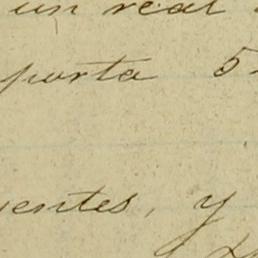 un real
porta 5
uentes, y